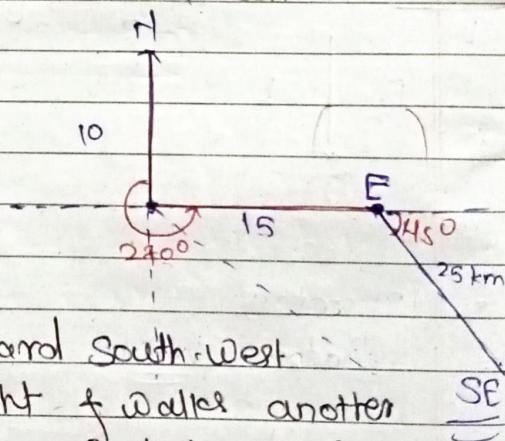 N
10
E
15
45°
270°
25 km
South-West
SE
& walks another